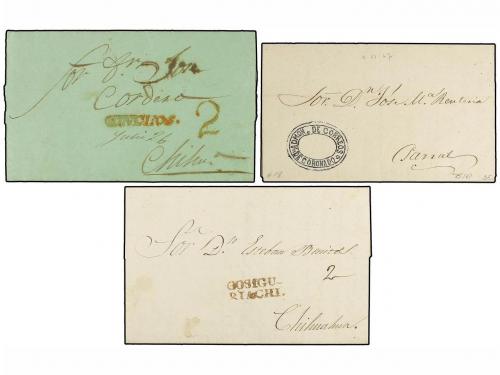 Sor. Dn. José
Cordero
2
Julio 26
Chiha.
Sor. Dn. José Ma. Renteria
ADMON. DE CORREOS
CORONADO
Parral
Sor. Dn. Esteban
2
COSIGU-
RIACHI.
Chihuahua.